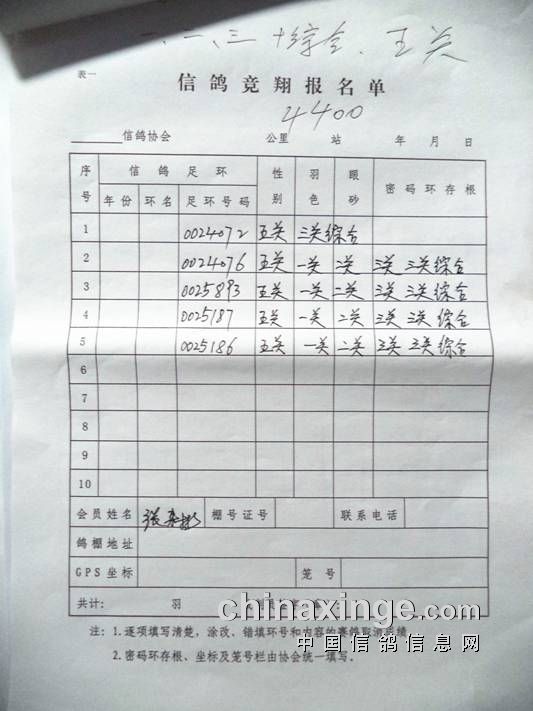 一、二、三 + 综合、五关
表一
信鸽竞翔报名单
4400
信鸽协会 公里 站 年 月 日
序号 信鸽足环 性别 羽色 眼砂 密码环存根
年份 环名 足环号码
1 0024072 五关 三关综合
2 0024076 五关 一关 二关 三关 三关综合
3 0025893 五关 一关 二关 三关 三关综合
4 0025187 五关 一关 二关 三关 三关综合
5 0025186 五关 一关 二关 三关 三关综合
6
7
8
9
10
会员姓名 张 棚号证号 联系电话
鸽棚地址
GPS坐标 笼号
共计: 羽
chinaxinge.com
注: 1.逐项填写清楚，涂改、错填环号和内容的赛鸽取消成绩
中国信鸽信息网
2.密码环存根、坐标及笼号栏由协会统一填写.